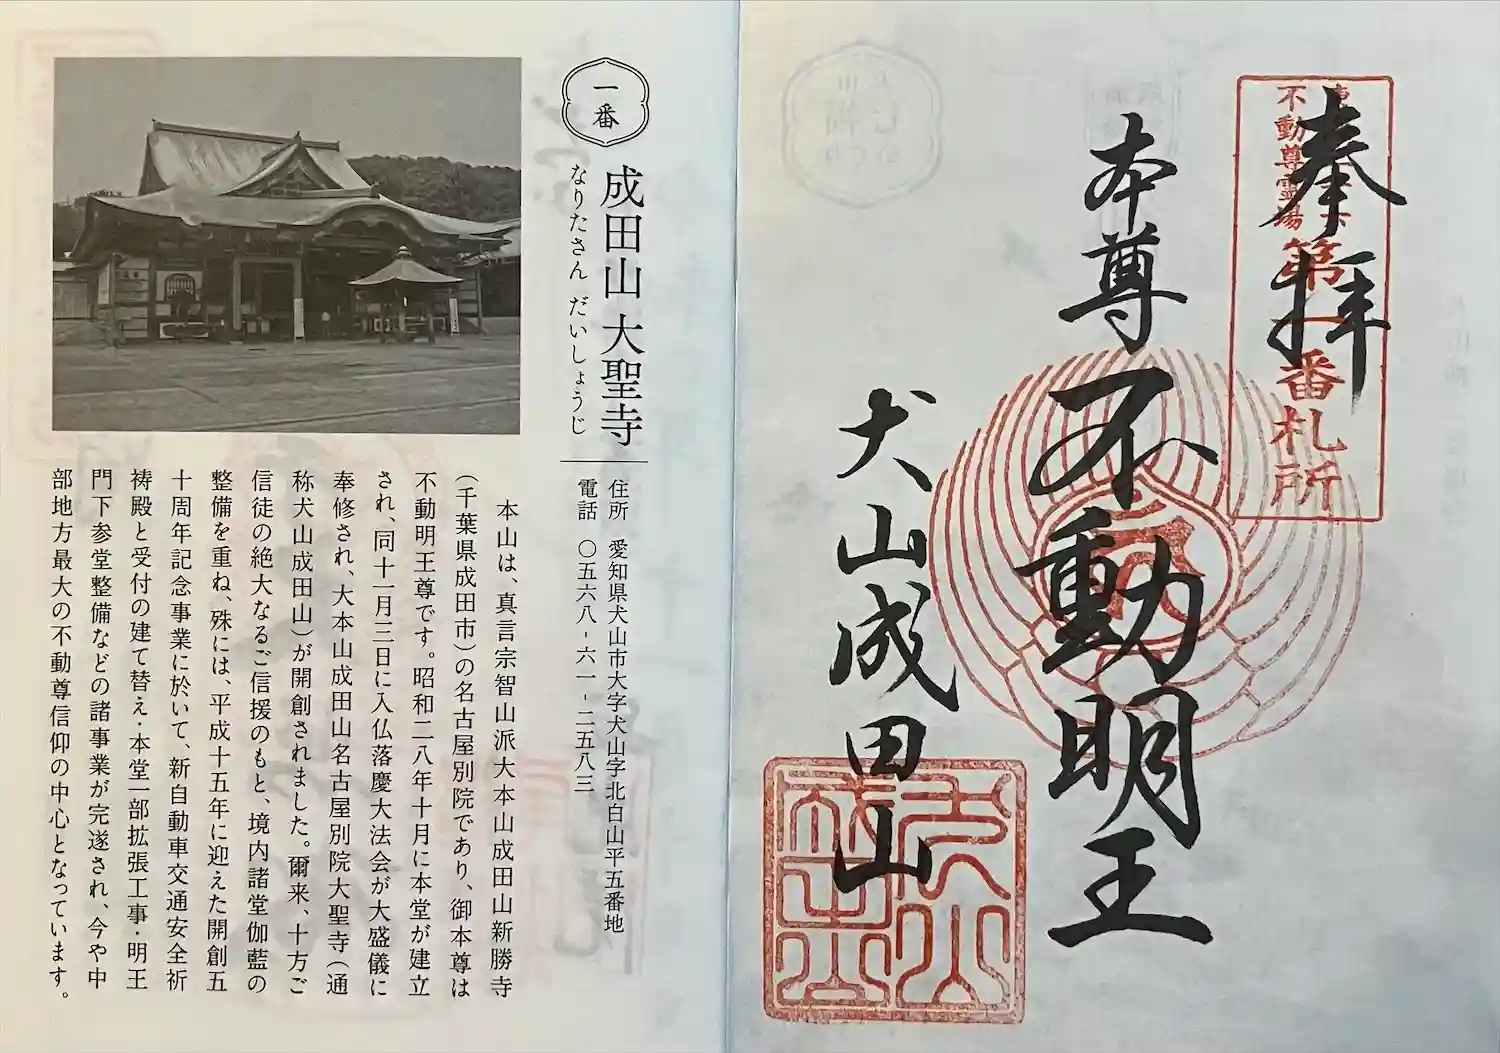 奉拝
不動尊霊場
第一番札所
本尊不動明王
犬山成田山
一番
成田山 大聖寺
なりたさん だいしょうじ
住所 愛知県犬山市大字犬山字北白山平五番地
電話 〇五六八-六一-二五八三
本山は、真言宗智山派大本山成田山新勝寺
(千葉県成田市)の名古屋別院であり、御本尊は
不動明王尊です。昭和二八年十月に本堂が建立
され、同十一月三日に入仏落慶大法会が大盛儀に
奉修され、大本山成田山名古屋別院大聖寺(通
称犬山成田山)が開創されました。爾来、十方ご
信徒の絶大なるご信援のもと、境内諸堂伽藍の
整備を重ね、殊には、平成十五年に迎えた開創五
十周年記念事業に於いて、新自動車交通安全祈
祷殿と受付の建て替え・本堂一部拡張工事・明王
門下参堂整備などの諸事業が完遂され、今や中
部地方最大の不動尊信仰の中心となっています。